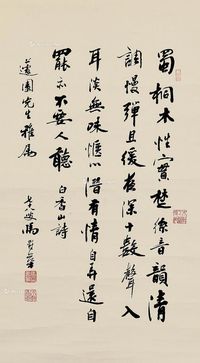 蜀桐木性實楚絲音韻清
調慢彈且緩夜深十數聲入
耳淡無味愜心潛有情自弄還自
罷亦不要人聽 白香山詩
園先生雅屬
馬壽華